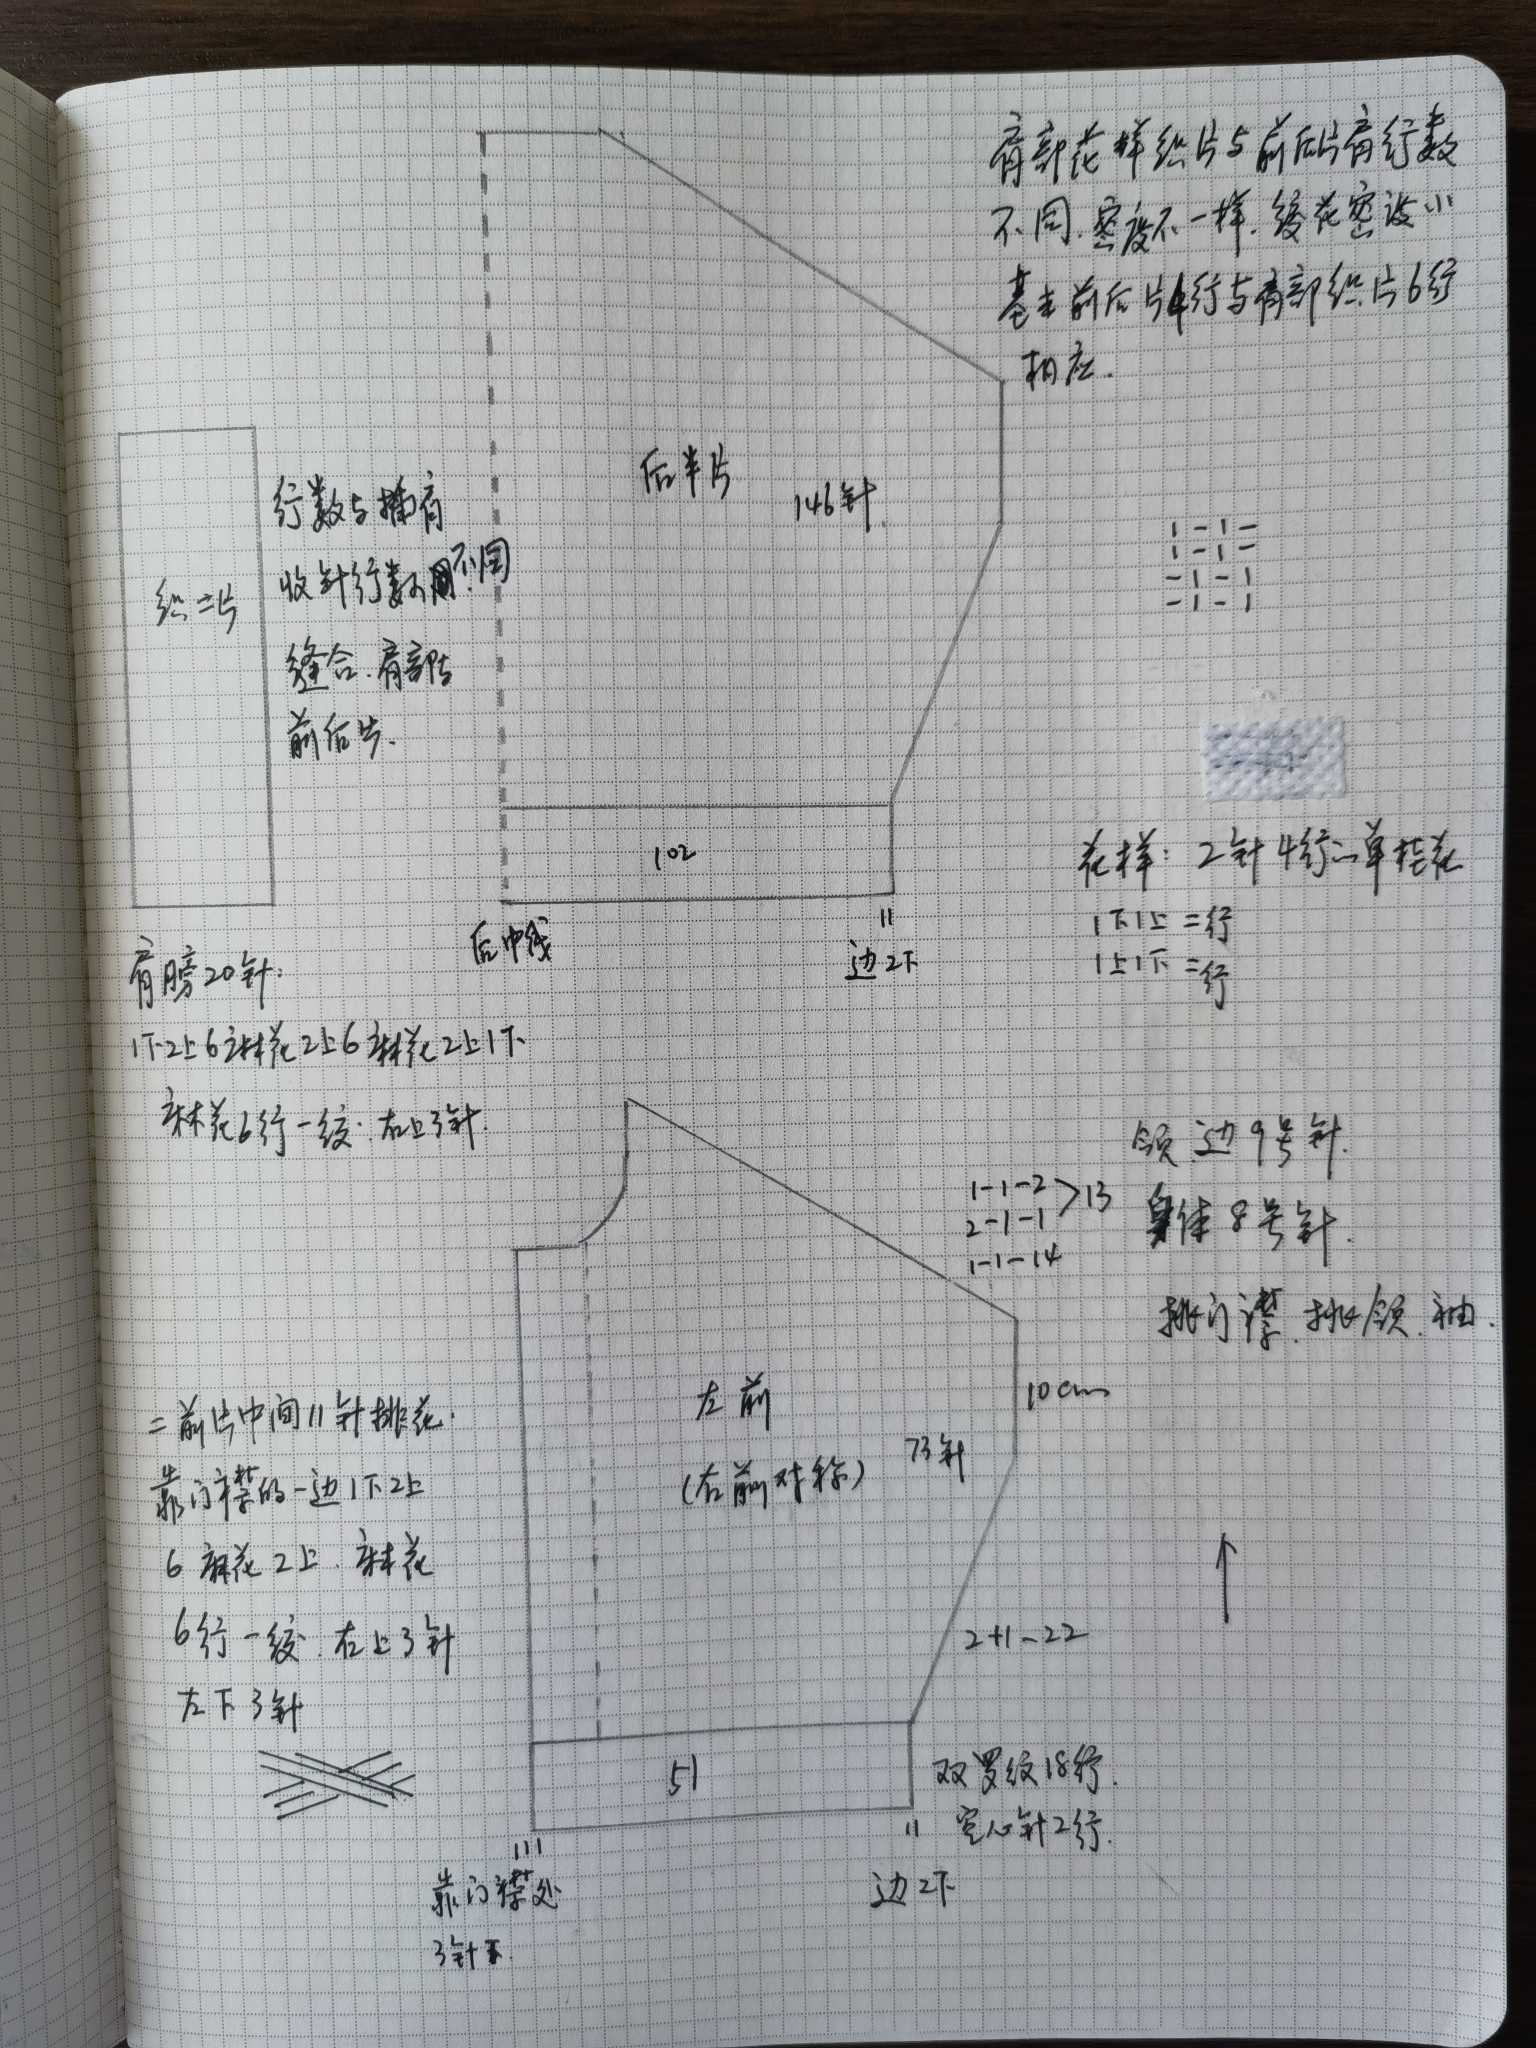 肩部花样织片与前后片肩行数
不同.密度不一样.绞花密度小
基本前后片4行与肩部织片6行
相应.
后半片
146针
行数与插肩
收针行数不同
缝合.肩部与
前后片.
织二片
1-1-
1-1-
-1-1
-1-1
102
花样:2针4行一单桂花
1下1上=行
1上1下=行
后中线
11
边2下
肩膀20针:
1下2上6麻花2上6麻花2上1下
麻花6行一绞.右上3针.
领.边9号针.
身体8号针.
挑门襟.挑领.袖.
1-1-2
2-1-1
>13
1-1-14
10cm
左前
(右前对称)
73针
二前片中间11针排花.
靠门襟的一边1下2上
6麻花2上.麻花
6行一绞.右上3针
左下3针
2+1-22
51
双罗纹18行.
空心针2行.
111
靠门襟处
3针下.
11
边2下